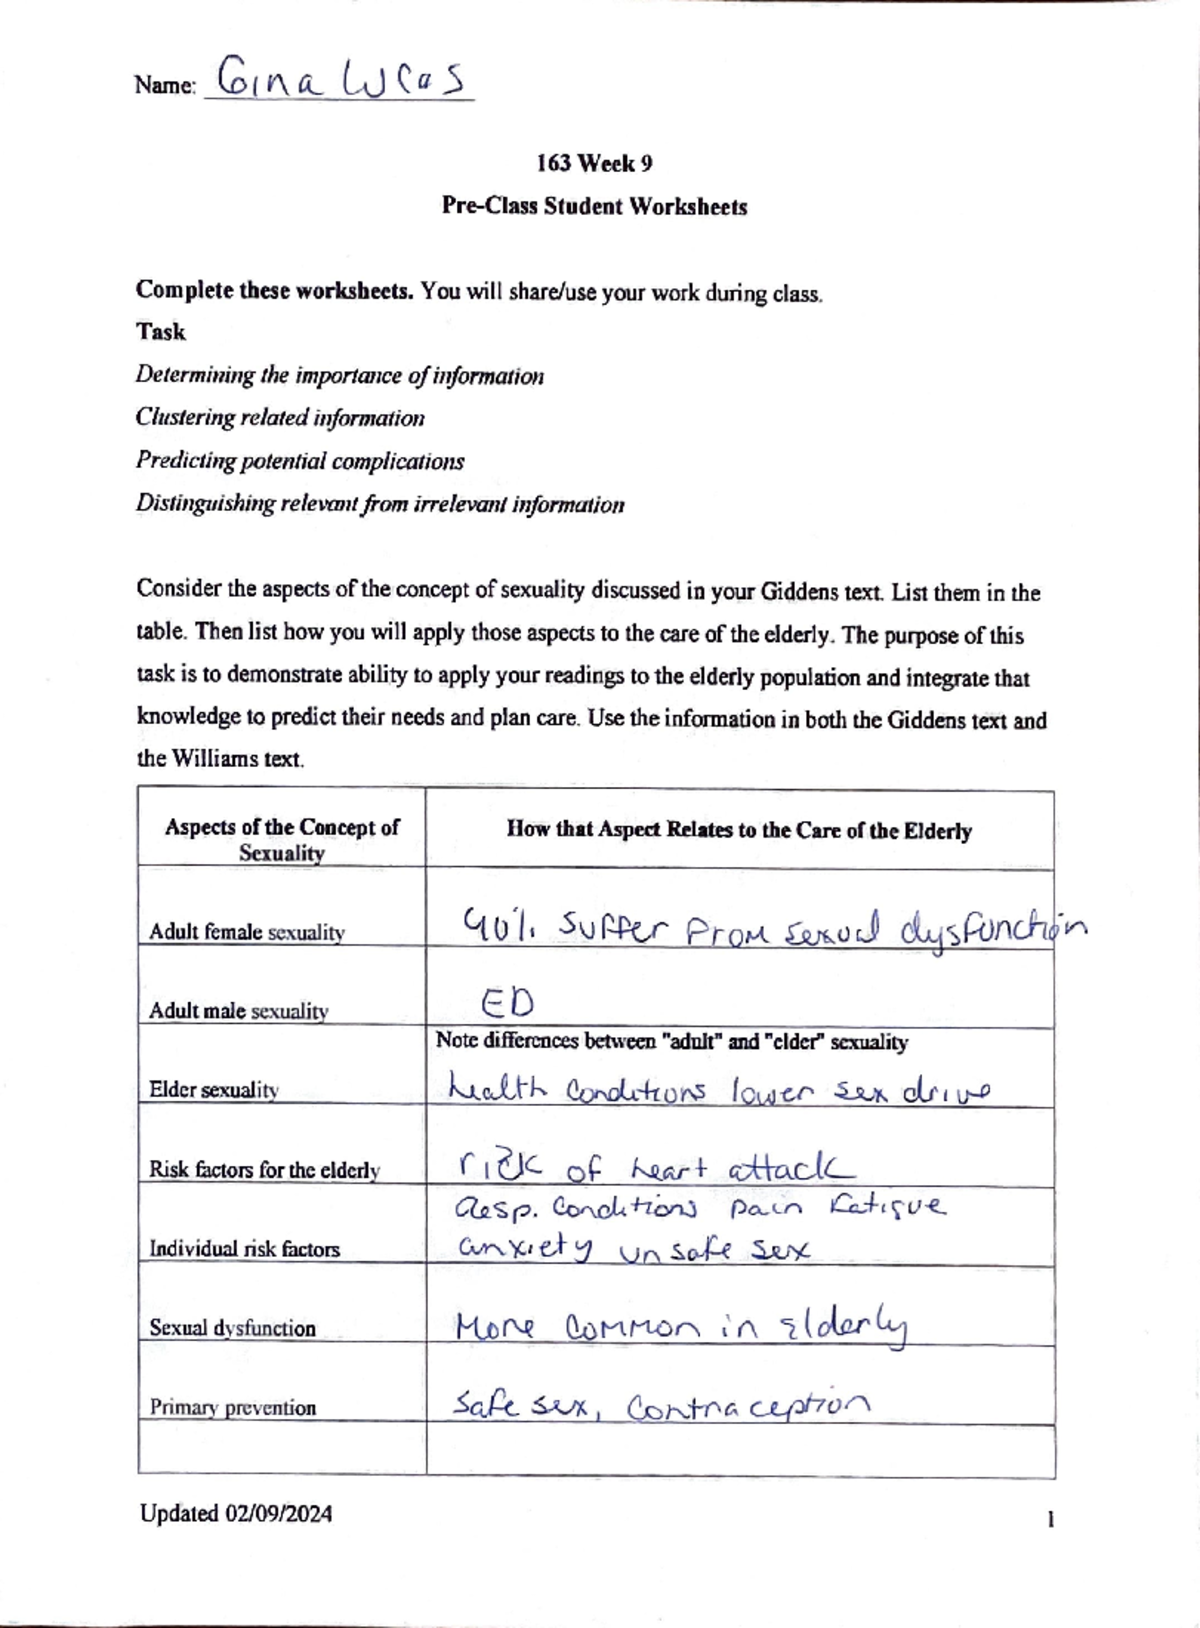 Name: Gina Lucas
163 Week 9
Pre-Class Student Worksheets
Complete these worksheets. You will share/use your work during class.
Task
Determining the importance of information
Clustering related information
Predicting potential complications
Distinguishing relevant from irrelevant information
Consider the aspects of the concept of sexuality discussed in your Giddens text. List them in the
table. Then list how you will apply those aspects to the care of the elderly. The purpose of this
task is to demonstrate ability to apply your readings to the elderly population and integrate that
knowledge to predict their needs and plan care. Use the information in both the Giddens text and
the Williams text.
Aspects of the Concept of
Sexuality
How that Aspect Relates to the Care of the Elderly
Adult female sexuality
40% suffer from sexual dysfunction
Adult male sexuality
ED
Note differences between "adult" and "elder" sexuality
Elder sexuality
health conditions lower sex drive
Risk factors for the elderly
risk of heart attack
Resp. conditions pain fatigue
Individual risk factors
anxiety unsafe sex
Sexual dysfunction
More common in elderly
Primary prevention
safe sex, contraception
Updated 02/09/2024
1